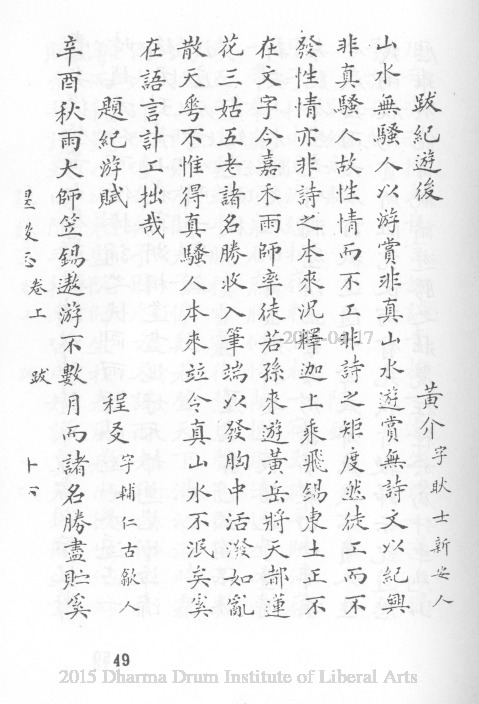 跋紀遊後
黃介字耿士新安人
山水無騷人以游賞非真山水遊賞無詩文以紀興
非真騷人故性情而不工非詩之矩度然徒工而不
發性情亦非詩之本來況釋迦上乘飛錫東土正不
在文字今嘉禾雨師率徒若孫來遊黃岳將天都蓮
花三姑五老諸名勝收入筆端以發胸中活潑如亂
散天雩不惟得真騷人本來竝令真山水不泯矣奚
在語言計工拙哉
題紀游賦
程㸚字輔仁古歙人
辛酉秋雨大師笠錫遨游不數月而諸名勝盡貯奚
卷上
跋
49
2015 Dharma Drum Institute of Liberal Arts